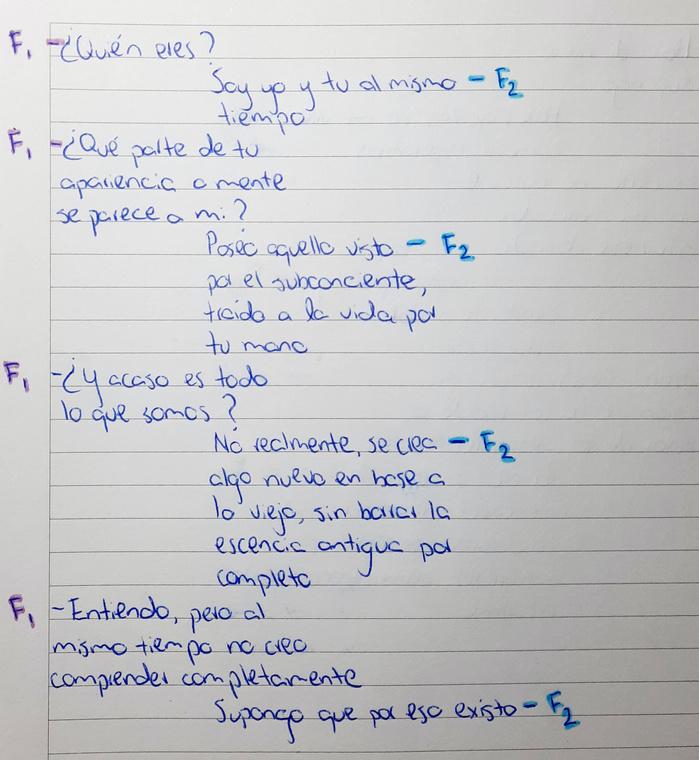 F1 -¿Quién eres?
Soy yo y tu al mismo - F2
tiempo
F1 -¿Qué parte de tu
apariencia o mente
se parece a mi?
Poseo aquello visto - F2
por el subconciente,
traído a la vida por
tu mano
F1 -¿Y acaso es todo
lo que somos?
No realmente, se crea - F2
algo nuevo en base a
lo viejo, sin borrar la
escencia antigua por
completo
F1 -Entiendo, pero al
mismo tiempo no creo
comprender completamente
Supongo que por eso existo - F2